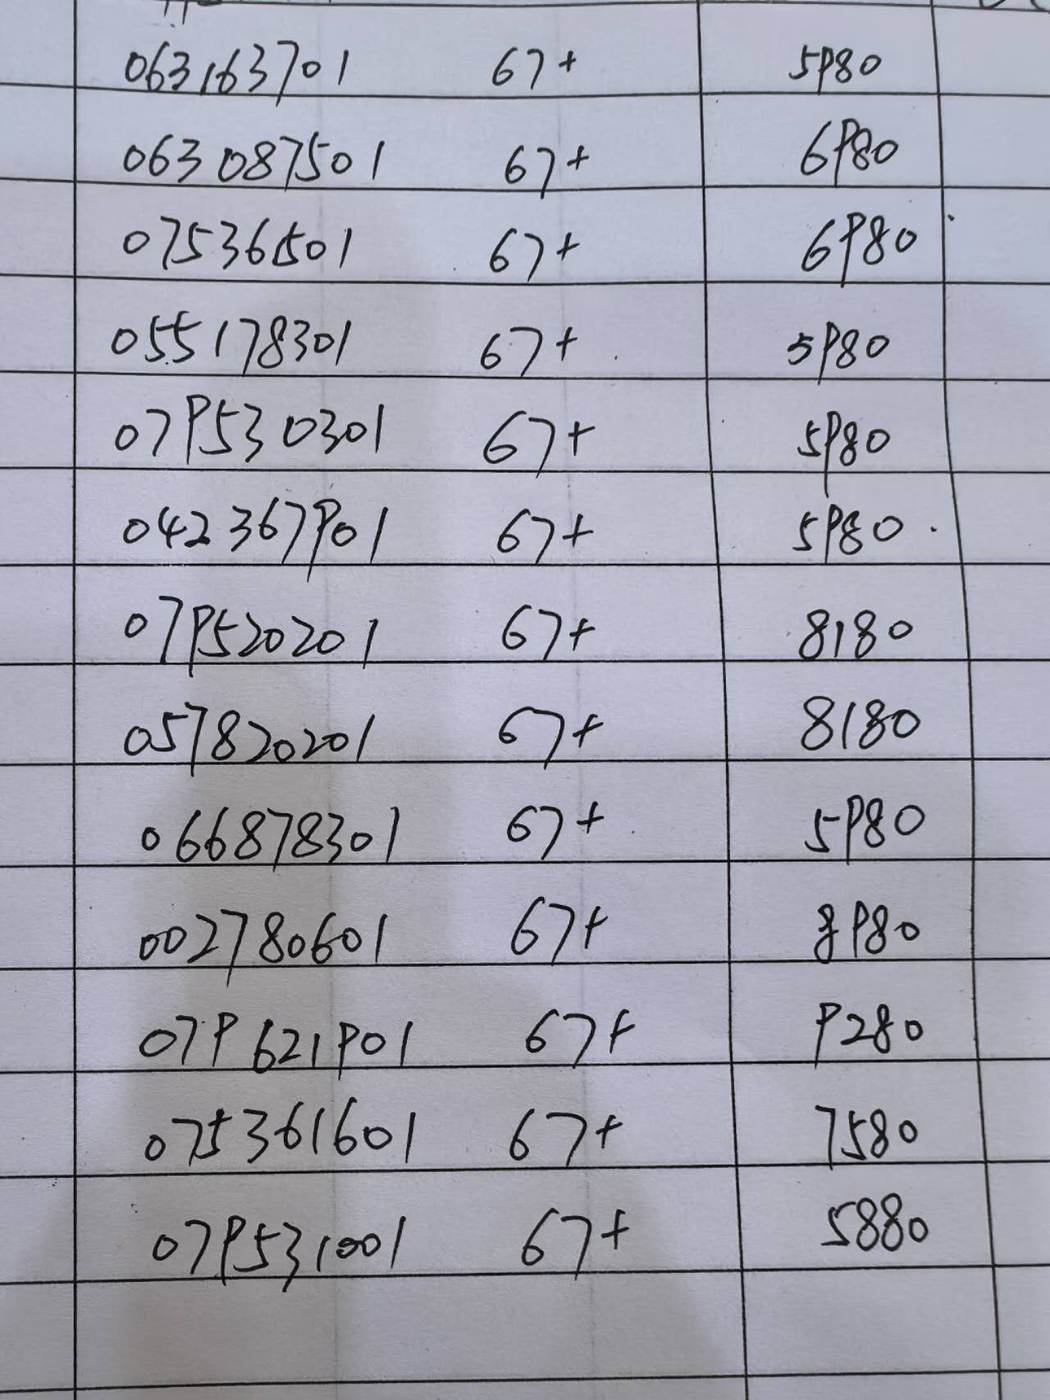 063163701 67+ 5980
063087501 67+ 6980
075361501 67+ 6980
055178301 67+ 5980
079530301 67+ 5980
042367901 67+ 5980
079520201 67+ 8180
057820201 67+ 8180
066878301 67+ 5980
002780601 67+ 8980
079621901 67+ 9280
075361601 67+ 7580
079531001 67+ 5880